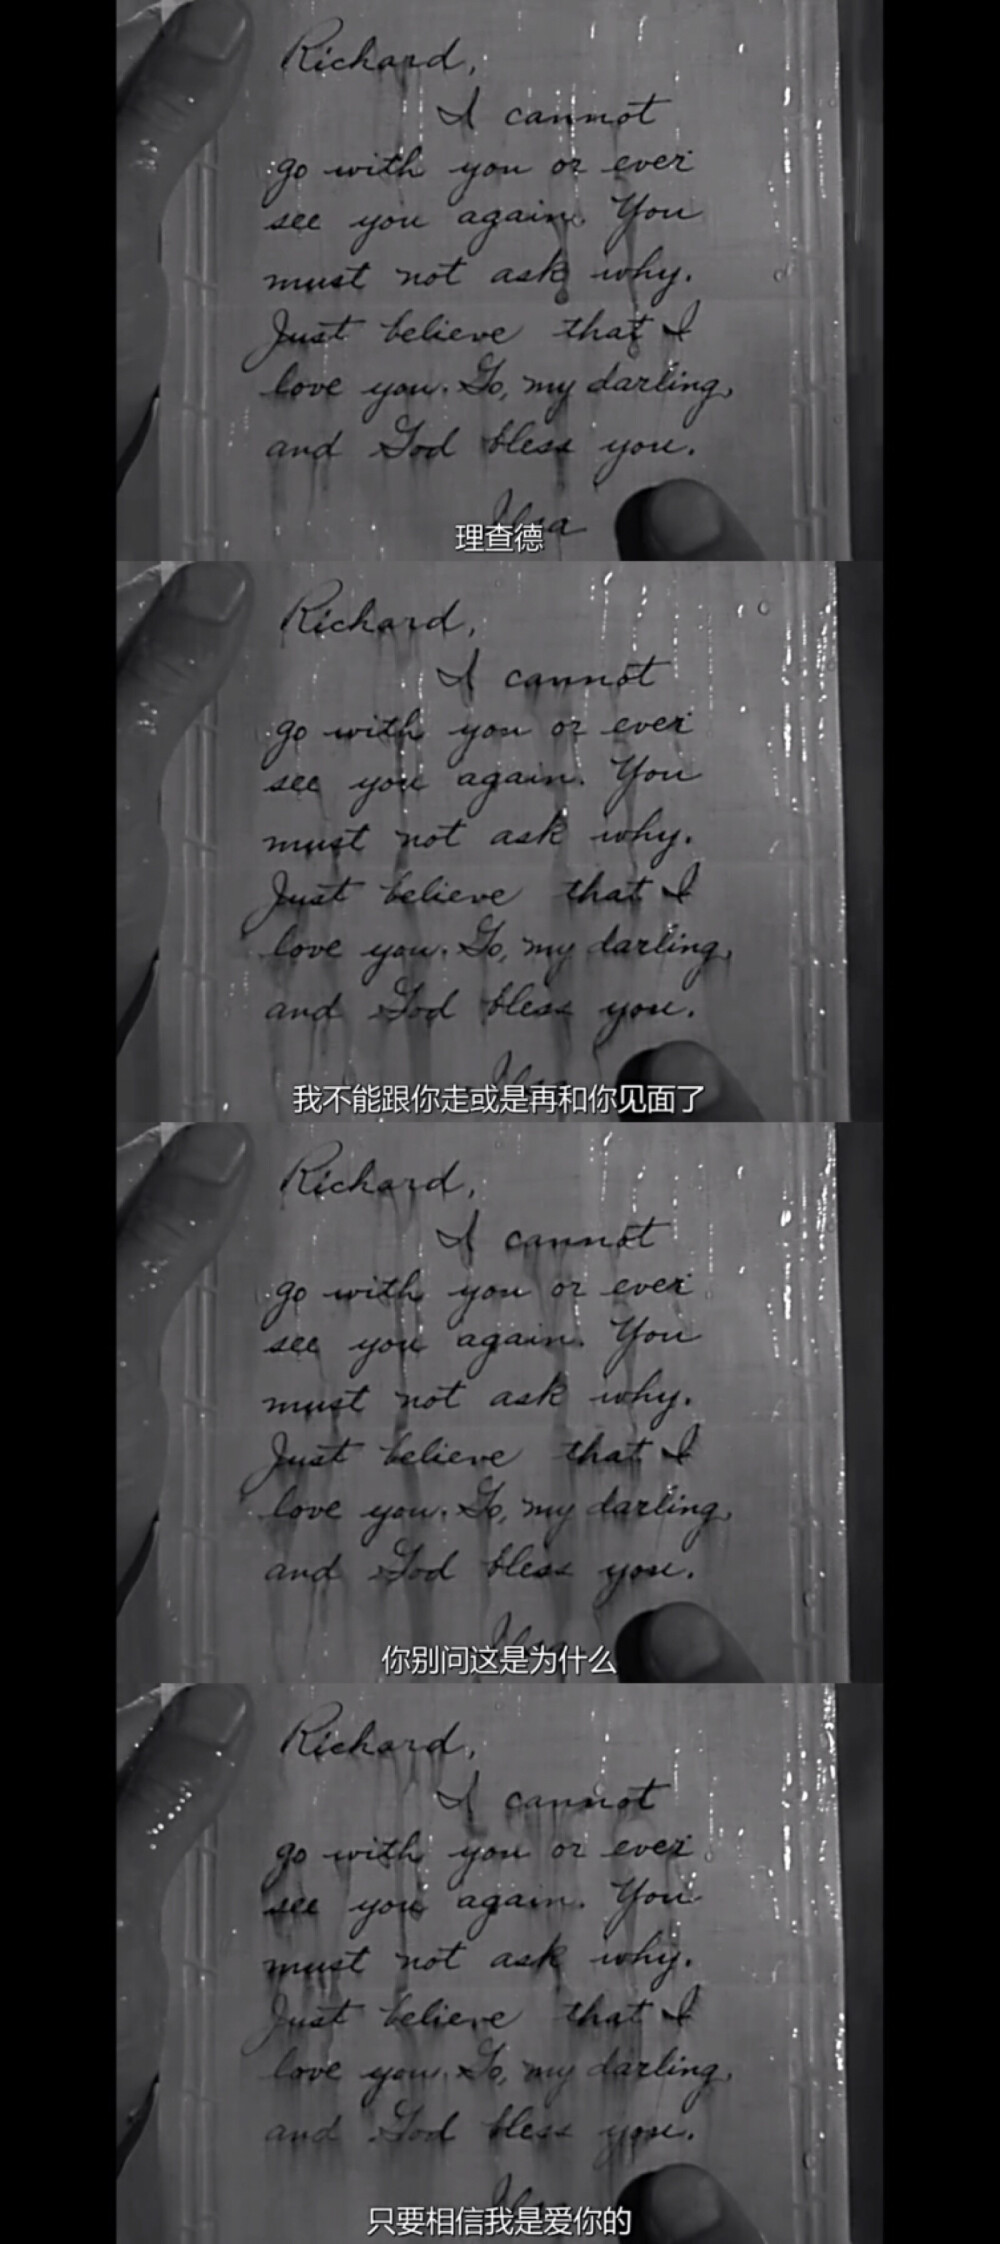 Richard,
I cannot
go with you or ever
see you again. You
must not ask why.
Just believe that I
love you. Go, my darling,
and God bless you.
Ilsa
理查德
Richard,
I cannot
go with you or ever
see you again. You
must not ask why.
Just believe that I
love you. Go, my darling,
and God bless you.
我不能跟你走或是再和你见面了
Richard,
I cannot
go with you or ever
see you again. You
must not ask why.
Just believe that I
love you. Go, my darling,
and God bless you.
你别问这是为什么
Richard,
I cannot
go with you or ever
see you again. You
must not ask why.
Just believe that I
love you. Go, my darling,
and God bless you.
只要相信我是爱你的